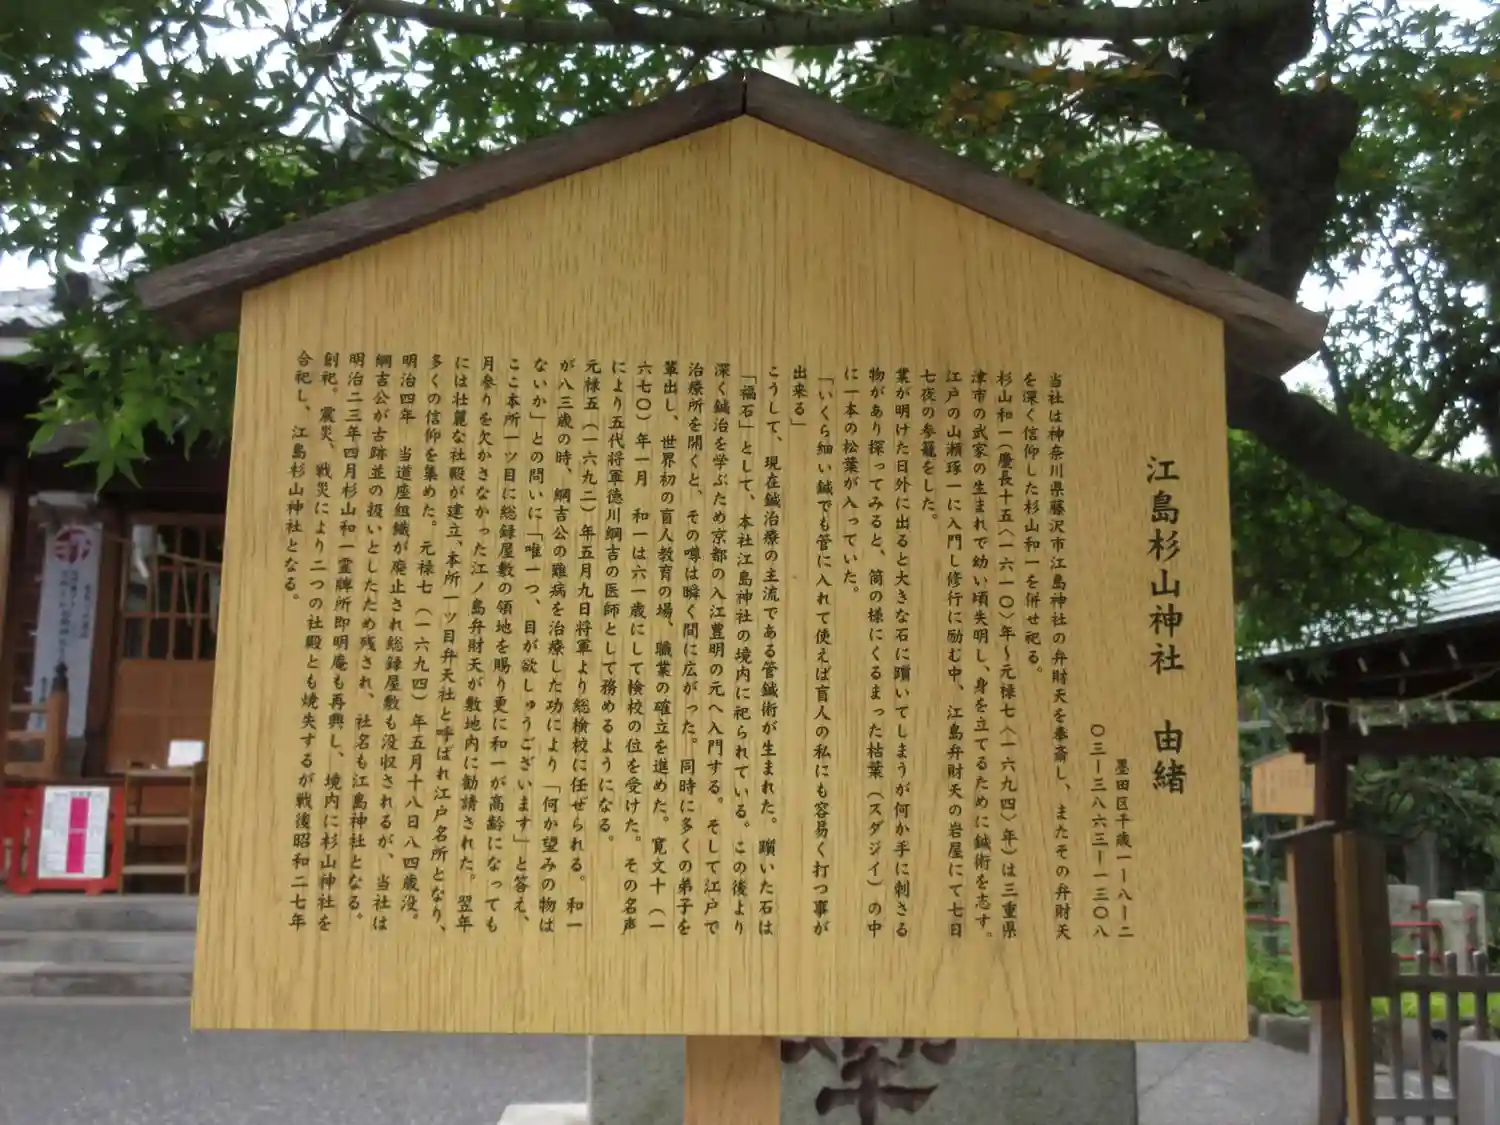 江島杉山神社　由緒
墨田区千歳一ー八ー二
〇三ー三八六三ー一三〇八
当社は神奈川県藤沢市江島神社の弁財天を奉斎し、またその弁財天
を深く信仰した杉山和一を併せ祀る。
杉山和一（慶長十五〈一六一〇〉年〜元禄七〈一六九四〉年）は三重県
津市の武家の生まれで幼い頃失明し、身を立てるために鍼術を志す。
江戸の山瀬琢一に入門し修行に励む中、江島弁財天の岩屋にて七日
七夜の参籠をした。
業が明けた日外に出ると大きな石に躓いてしまうが何か手に刺さる
物があり探ってみると、筒の様にくるまった枯葉（スダジイ）の中
に一本の松葉が入っていた。
「いくら細い鍼でも管に入れて使えば盲人の私にも容易く打つ事が
出来る」
こうして、現在鍼治療の主流である管鍼術が生まれた。躓いた石は
「福石」として、本社江島神社の境内に祀られている。この後より
深く鍼治を学ぶため京都の入江豊明の元へ入門する。そして江戸で
治療所を開くと、その噂は瞬く間に広がった。同時に多くの弟子を
輩出し、世界初の盲人教育の場、職業の確立を進めた。寛文十（一
六七〇）年一月　和一は六一歳にして検校の位を受けた。その名声
により五代将軍徳川綱吉の医師として務めるようになる。
元禄五（一六九二）年五月九日将軍より総検校に任ぜられる。和一
が八三歳の時、綱吉公の難病を治療した功により「何か望みの物は
ないか」との問いに「唯一つ、目が欲しゅうございます」と答え、
ここ本所一ツ目に総録屋敷の領地を賜り更に和一が高齢になっても
月参りを欠かさなかった江ノ島弁財天が敷地内に勧請された。翌年
には壮麗な社殿が建立、本所一ツ目弁天社と呼ばれ江戸名所となり、
多くの信仰を集めた。元禄七（一六九四）年五月十八日八四歳没。
明治四年　当道座組織が廃止され総録屋敷も没収されるが、当社は
綱吉公が古跡並の扱いとしたため残され、社名も江島神社となる。
明治二三年四月杉山和一霊牌所即明庵も再興し、境内に杉山神社を
創祀。震災、戦災により二つの社殿とも焼失するが戦後昭和二七年
合祀し、江島杉山神社となる。